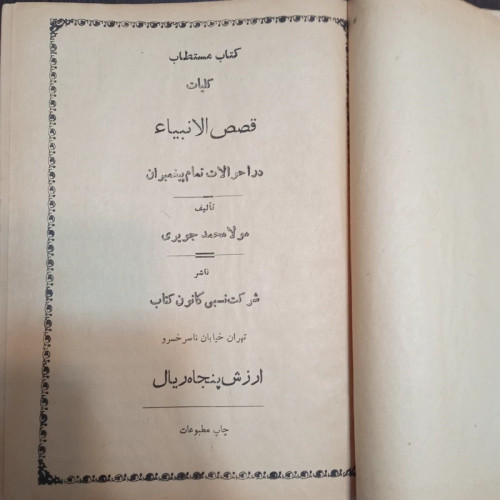 کتاب مستطاب
کلیات
قصص الانبیاء
در احوالات تمام پیغمبران
تألیف
مولا محمد جویری
ناشر
شرکت نسبی کانون کتاب
تهران خیابان ناصرخسرو
ارزش پنجاه ریال
چاپ مطبوعات